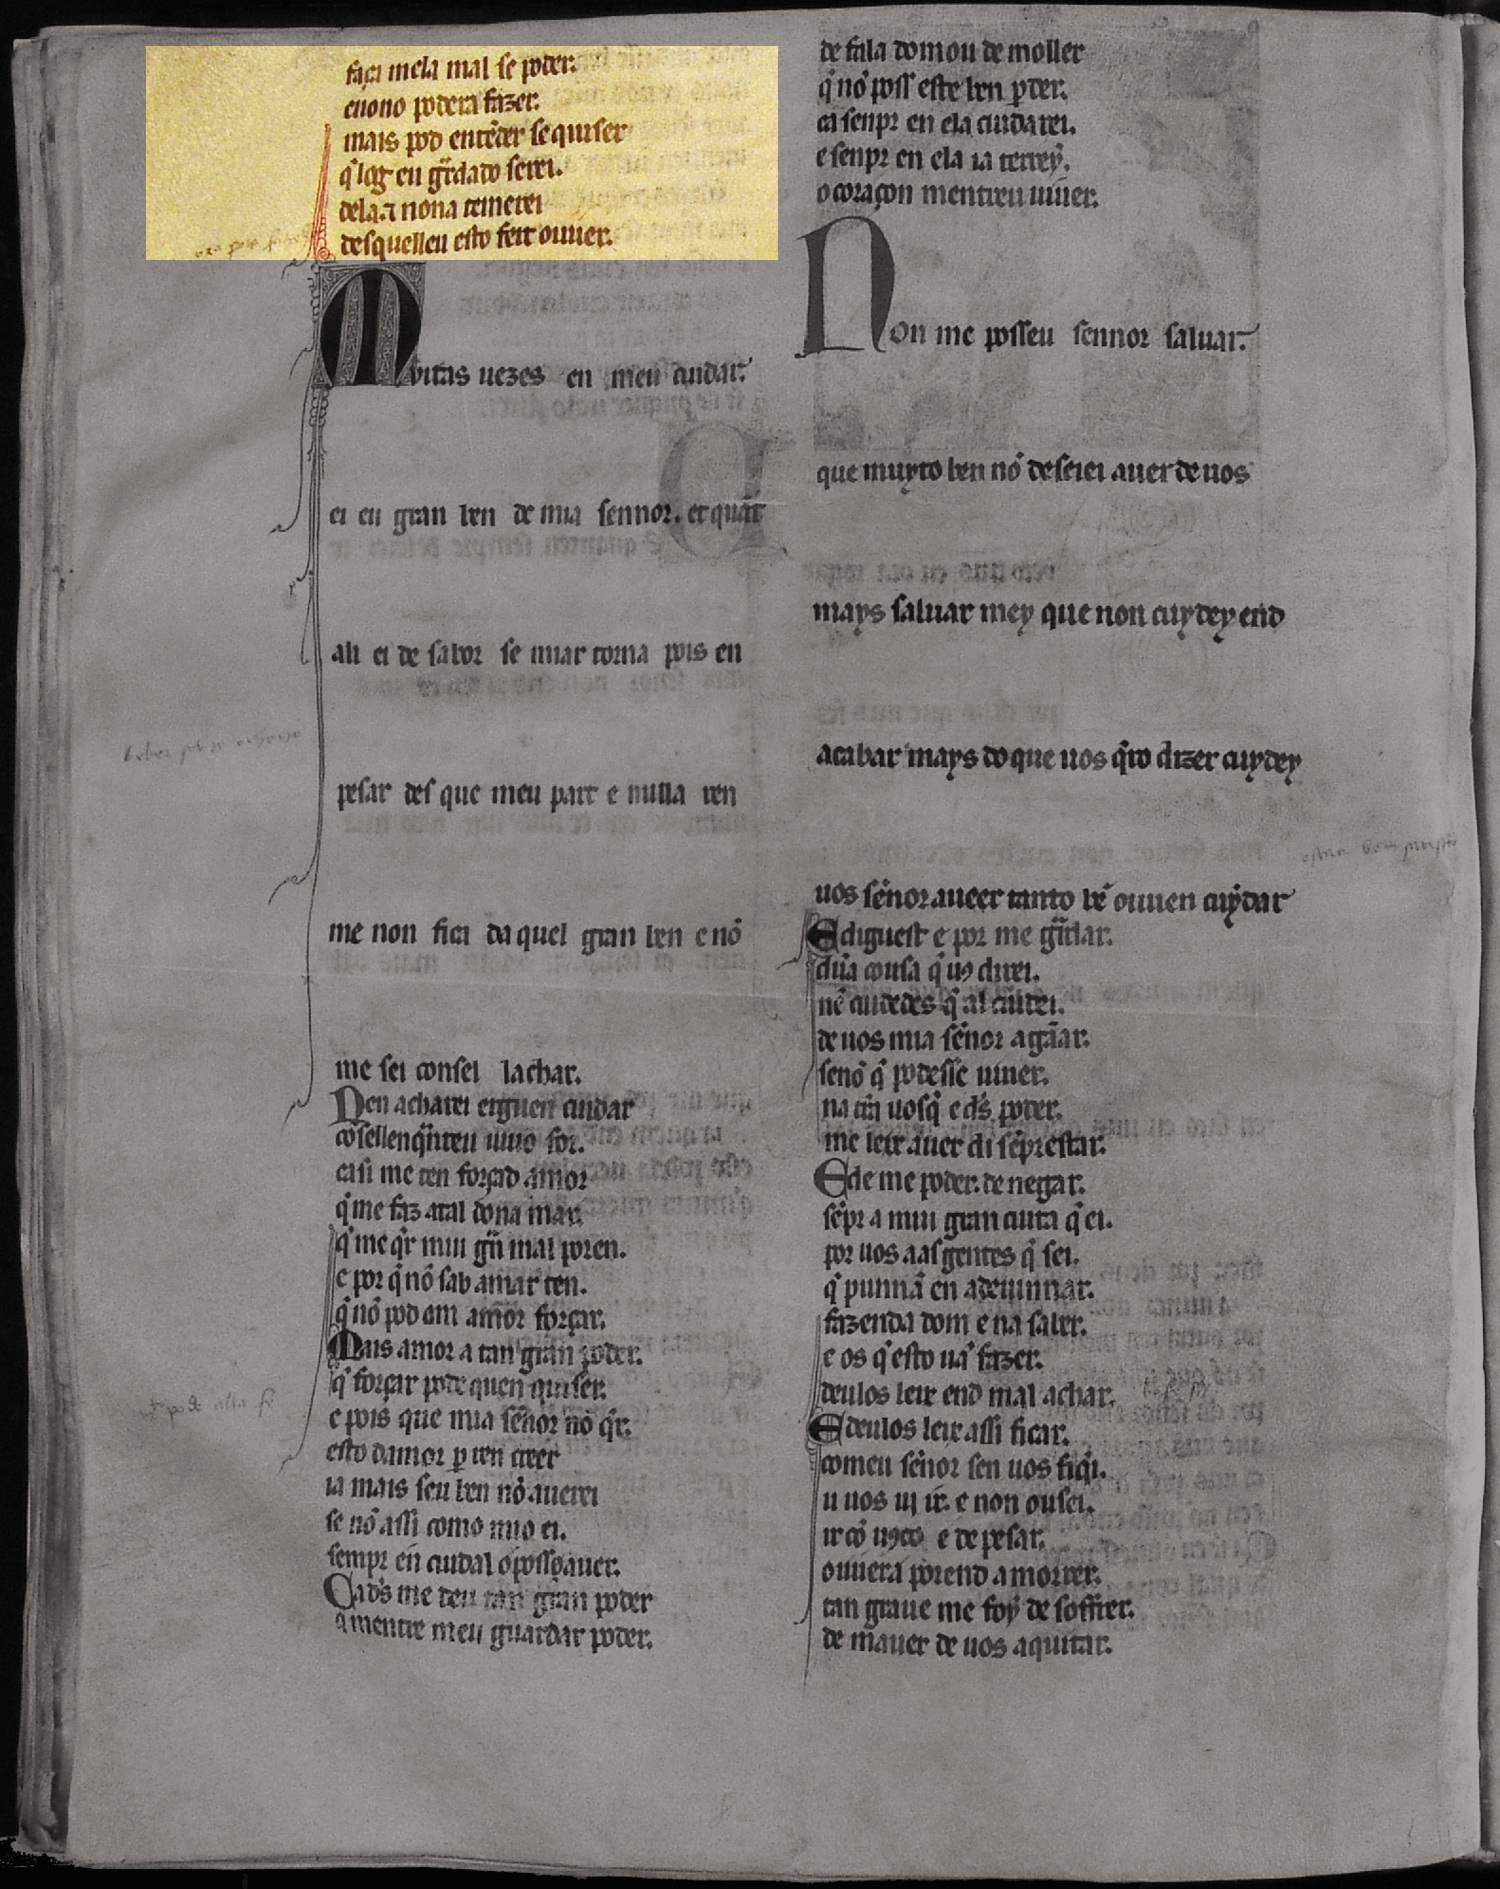 faça mela mal se poder.
enono podera fazer.
mais pod entẽder se quiser
q̃ log eu gr̃dado serei.
dela. nona temerei
desquelleu esto feit ouuer.
Muitas uezes en meu cuidar.
ei eu gran ben de mia sennor. et quãt
ali ei de sabor se miar torna pois en
pesar des que meu part e nulla ren
me non fica da quel gran ben e nõ
me sei consel lachar.
Nen acharei erguen cuidar
cõsellen q̃nteu uiuo for.
ca si me ten forçad amor
q̃ me faz atal dona mar.
q̃ me q̃r mui gñ mal poren.
e por q̃ nõ sab amar ren.
q̃ nõ pod om amor forçar.
Mais amor a tan gran poder.
q̃ forçar pode quen quiser.
e pois que mia sẽnor nõ q̃r.
esto damor ꝑ ren creer
ia mais seu ben nõ auerei
se nõ assi como mio ei.
sempr en cuidal o posso auer.
Ca d̃s me deu tan gran poder
q̃ mentre meu guardar poder.
de fala domou de moller
q̃ nõ poss este ben ꝑder.
ca senpr en ela cuidarei.
e senpr en ela ia terrey.
o coraçon mentreu uiuer.
Non me posseu sennor saluar.
que muyto ben nõ deseiei auer de uos
mays saluar mey que non cuydey end
acabar mays do que uos q̃ro dizer cuydey
uos sẽnor aueer tanto bẽ ouuen cuydar
E diguest e por me gr̃dar.
dũa cousa q̃ uꝯ direi.
nẽ cuidedes q̃ al cuidei.
de uos mia sẽnor agãar.
senõ q̃ podesse uiuer.
na t̃ra uosq̃ e d̃s poder.
me leix auer di sẽpr estar.
E de me poder. de negar.
sẽpr a mui gran cuita q̃ ei.
por uos aas gentes q̃ sei.
q̃ punnã en adeuinnar.
fazenda dom e na saber.
e os q̃ esto uã fazer.
deulos leix end mal achar.
E deulos leix assi ficar.
comeu sẽnor sen uos fiq̃i.
u uos ui ir. e non ousei.
ir cõ uꝯco e de pesar.
ouuera porend a morrer.
tan graue me foy de soffrer.
de mauer de uos a quitar.